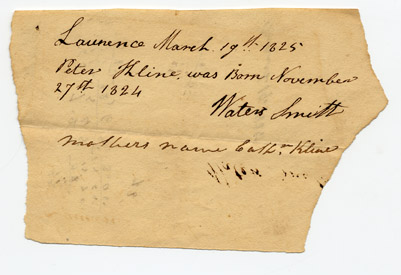 Lawrence March 19th 1825
Peter Kline was Born November
27th 1824
Waters Smith
mothers name Cathn Kline